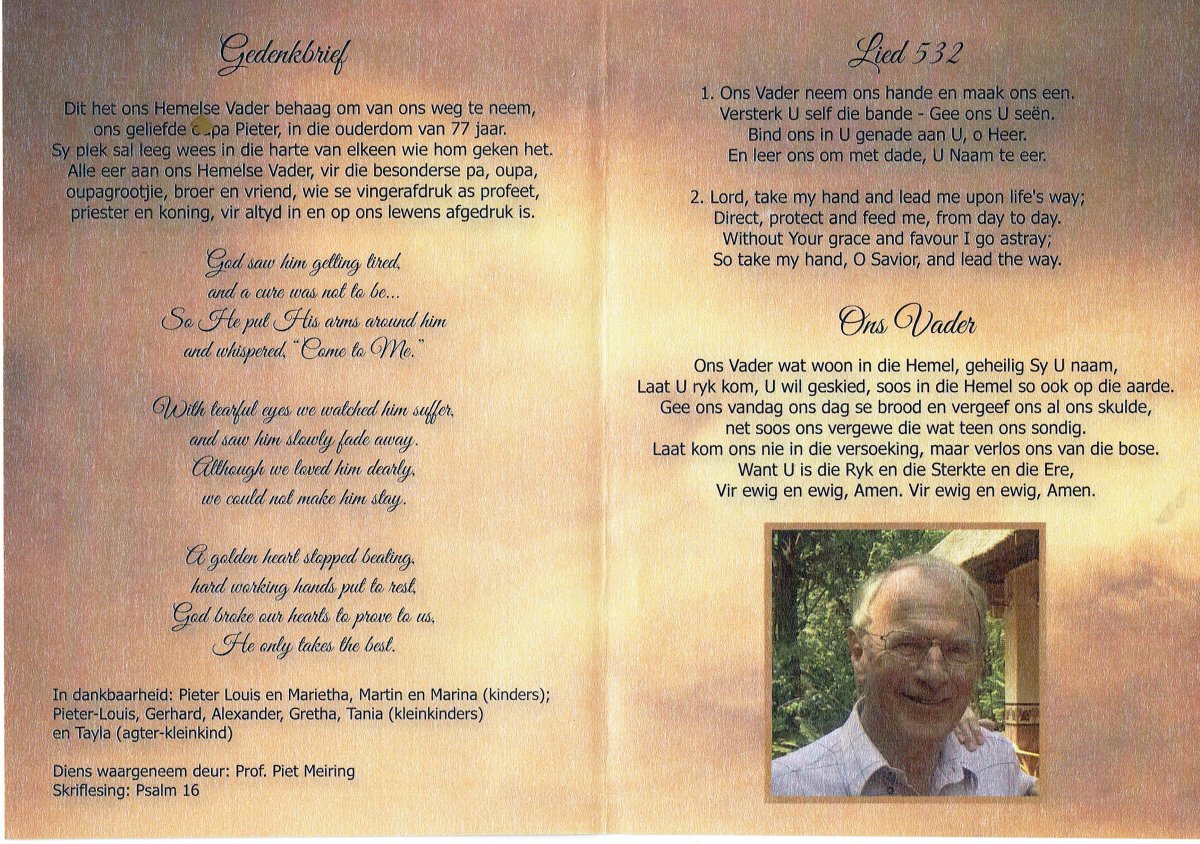 Gedenkbrief
Dit het ons Hemelse Vader behaag om van ons weg te neem,
ons geliefde oupa Pieter, in die ouderdom van 77 jaar.
Sy plek sal leeg wees in die harte van elkeen wie hom geken het.
Alle eer aan ons Hemelse Vader, vir die besonderse pa, oupa,
oupagrootjie, broer en vriend, wie se vingerafdruk as profeet,
priester en koning, vir altyd in en op ons lewens afgedruk is.
God saw him getting tired,
and a cure was not to be...
So He put His arms around him
and whispered, "Come to Me."
With tearful eyes we watched him suffer,
and saw him slowly fade away.
Although we loved him dearly,
we could not make him stay.
A golden heart stopped beating,
hard working hands put to rest,
God broke our hearts to prove to us,
He only takes the best.
In dankbaarheid: Pieter Louis en Marietha, Martin en Marina (kinders);
Pieter-Louis, Gerhard, Alexander, Gretha, Tania (kleinkinders)
en Tayla (agter-kleinkind)
Diens waargeneem deur: Prof. Piet Meiring
Skriflesing: Psalm 16
Lied 532
1. Ons Vader neem ons hande en maak ons een.
Versterk U self die bande - Gee ons U seën.
Bind ons in U genade aan U, o Heer.
En leer ons om met dade, U Naam te eer.
2. Lord, take my hand and lead me upon life's way;
Direct, protect and feed me, from day to day.
Without Your grace and favour I go astray;
So take my hand, O Savior, and lead the way.
Ons Vader
Ons Vader wat woon in die Hemel, geheilig Sy U naam,
Laat U ryk kom, U wil geskied, soos in die Hemel so ook op die aarde.
Gee ons vandag ons dag se brood en vergeef ons al ons skulde,
net soos ons vergewe die wat teen ons sondig.
Laat kom ons nie in die versoeking, maar verlos ons van die bose.
Want U is die Ryk en die Sterkte en die Ere,
Vir ewig en ewig, Amen. Vir ewig en ewig, Amen.